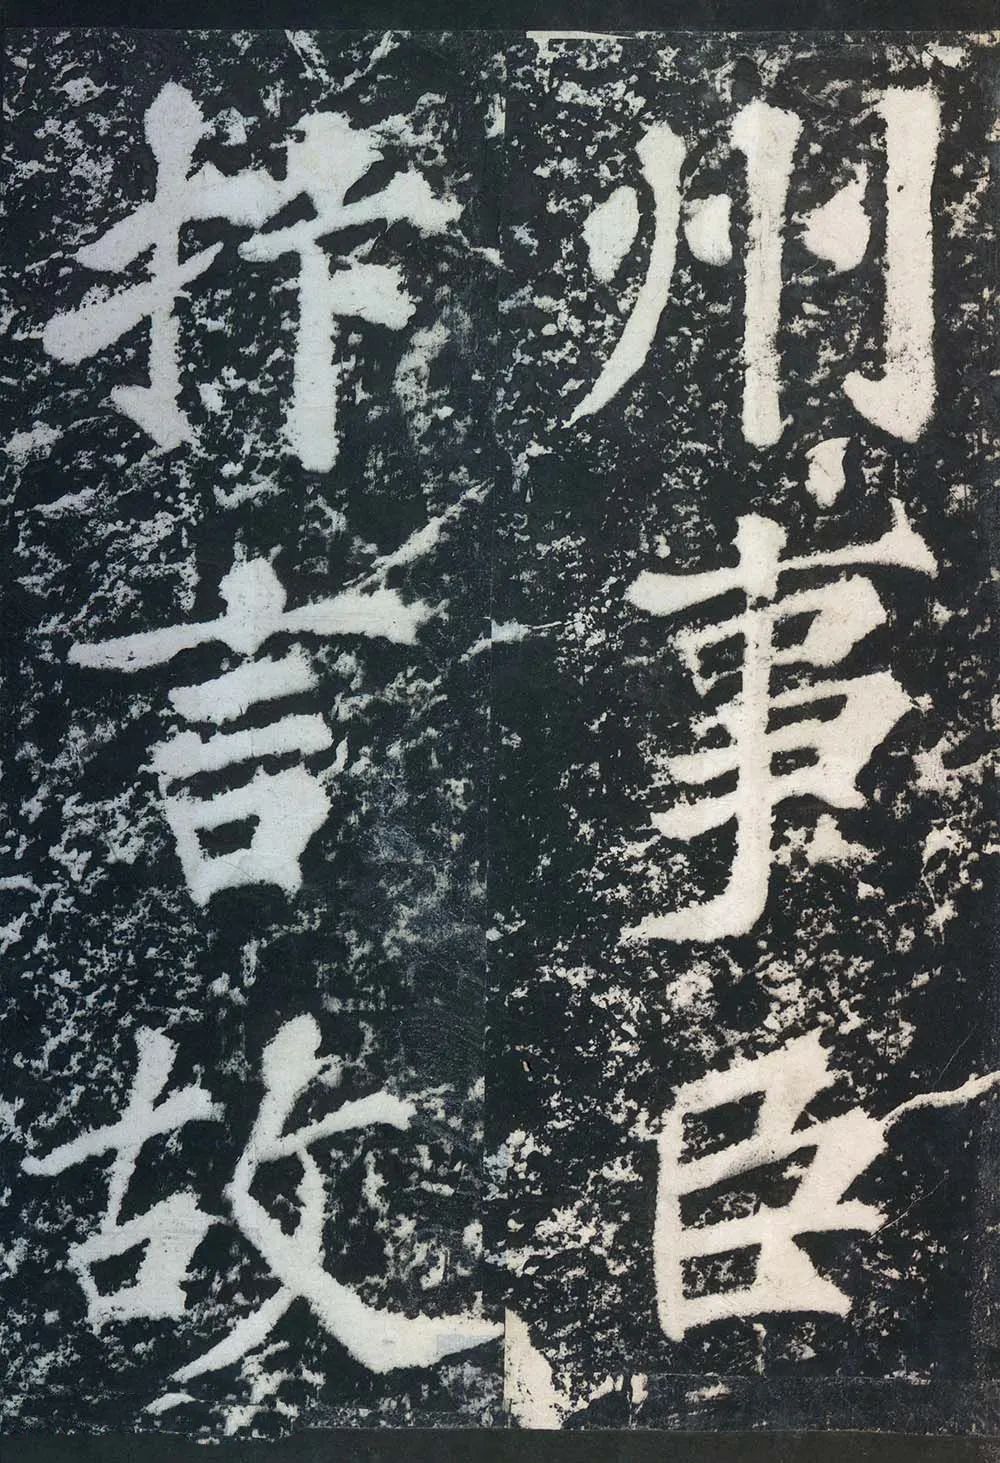 州事臣
抃言故